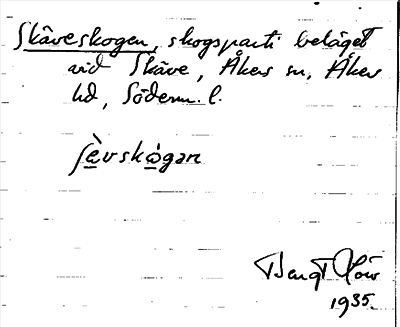 Skäveskogen, skogsparti beläget
vid Skäve, Åkers sn, Åkers
hd, Söderm. l.
ʃèvskógan
Bengt
1935.